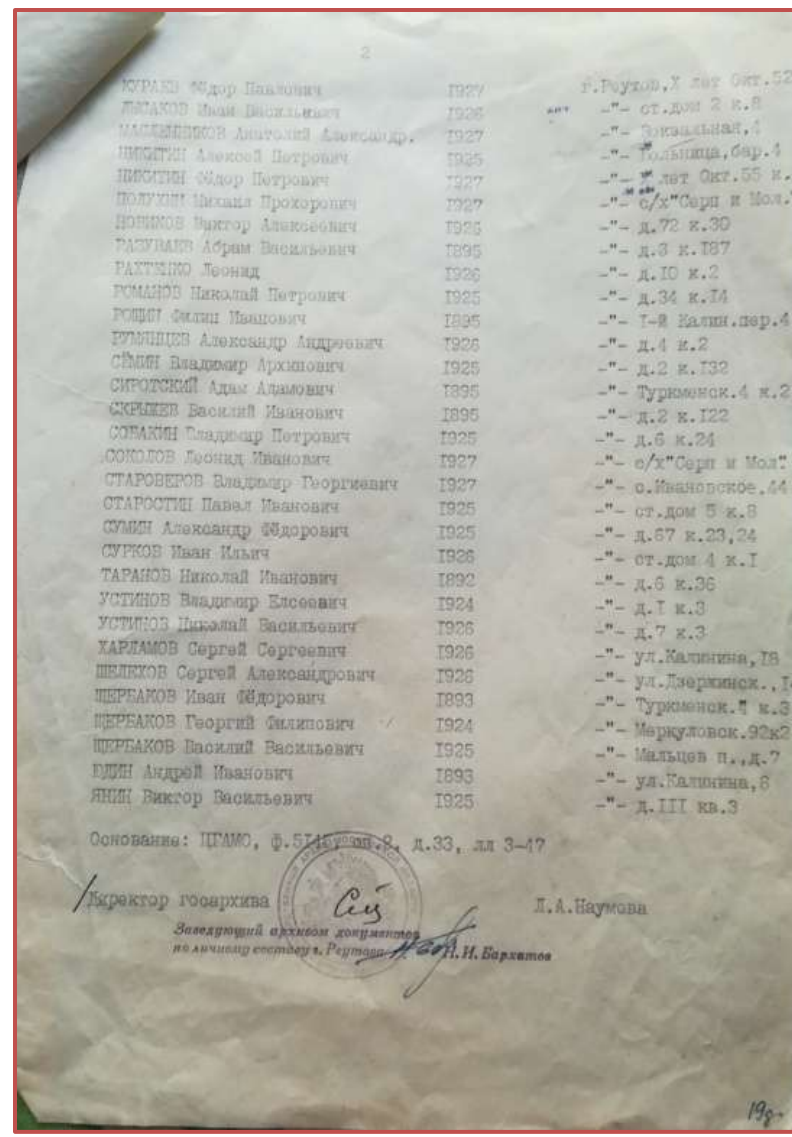 2
КУРАЕВ Фёдор Павлович 1927 г.Реутов,Х лет Окт.52
ЛЫСАКОВ Иван Васильевич 1926 -"- ст.дом 2 к.8
МАСЛЕННИКОВ Анатолий Александр. 1927 -"- Вокзальная,4
НИКИТИН Алексей Петрович 1925 -"- Больница,бар.4
НИКИТИН Фёдор Петрович 1927 -"- лет Окт.55 к.
ПОЛУХИН Михаил Прохорович 1927 -"- с/х"Серп и Мол."
НОВИКОВ Виктор Алексеевич 1926 -"- д.72 к.30
РАЗУВАЕВ Абрам Васильевич 1895 -"- д.3 к.I87
РАХТЕНКО Леонид 1926 -"- д.IO к.2
РОМАНОВ Николай Петрович 1925 -"- д.34 к.I4
РОЩИН Филип Иванович 1895 -"- I-й Калин.пер.4
РУМЯНЦЕВ Александр Андреевич 1926 -"- д.4 к.2
СЁМИН Владимир Архипович 1925 -"- д.2 к.I32
СИРОТСКИЙ Адам Адамович 1895 -"- Туркменск.4 к.2
СКРЫЖЕВ Василий Иванович 1895 -"- д.2 к.I22
СОБАКИН Владимир Петрович 1925 -"- д.6 к.24
СОКОЛОВ Леонид Иванович 1927 -"- с/х"Серп и Мол."
СТАРОВЕРОВ Владимир Георгиевич 1927 -"- с.Ивановское,44
СТАРОСТИН Павел Иванович 1925 -"- ст.дом 5 к.8
СУМИН Александр Фёдорович 1925 -"- д.67 к.23,24
СУРКОВ Иван Ильич 1926 -"- ст.дом 4 к.I
ТАРАНОВ Николай Иванович 1892 -"- д.6 к.36
УСТИНОВ Владимир Елсеевич 1924 -"- д.I к.3
УСТИНОВ Николай Васильевич 1926 -"- д.7 к.3
ХАРЛАМОВ Сергей Сергеевич 1926 -"- ул.Калинина,I8
ШЕЛЕХОВ Сергей Александрович 1926 -"- ул.Дзержинск.,
ЩЕРБАКОВ Иван Фёдорович 1893 -"- Туркменск. к.3
ЩЕРБАКОВ Георгий Филипович 1924 -"- Меркуловск.92к2
ЩЕРБАКОВ Василий Васильевич 1925 -"- Мальцев п.,д.7
ЮДИН Андрей Иванович 1893 -"- ул.Калинина,8
ЯНИН Виктор Васильевич 1925 -"- д.III кв.3
Основание: ЦГАМО, д.33, лл 3-47
Директор госархива Л.А.Наумова
Заведующий архивом документов
по личному составу г. Реутова Н.И. Бархатов